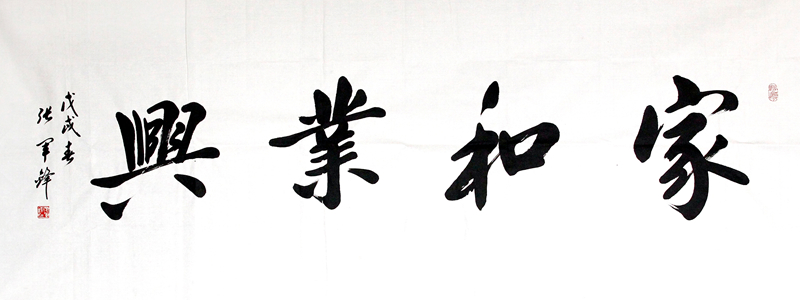 家和業興
戊戌春
張軍鋒